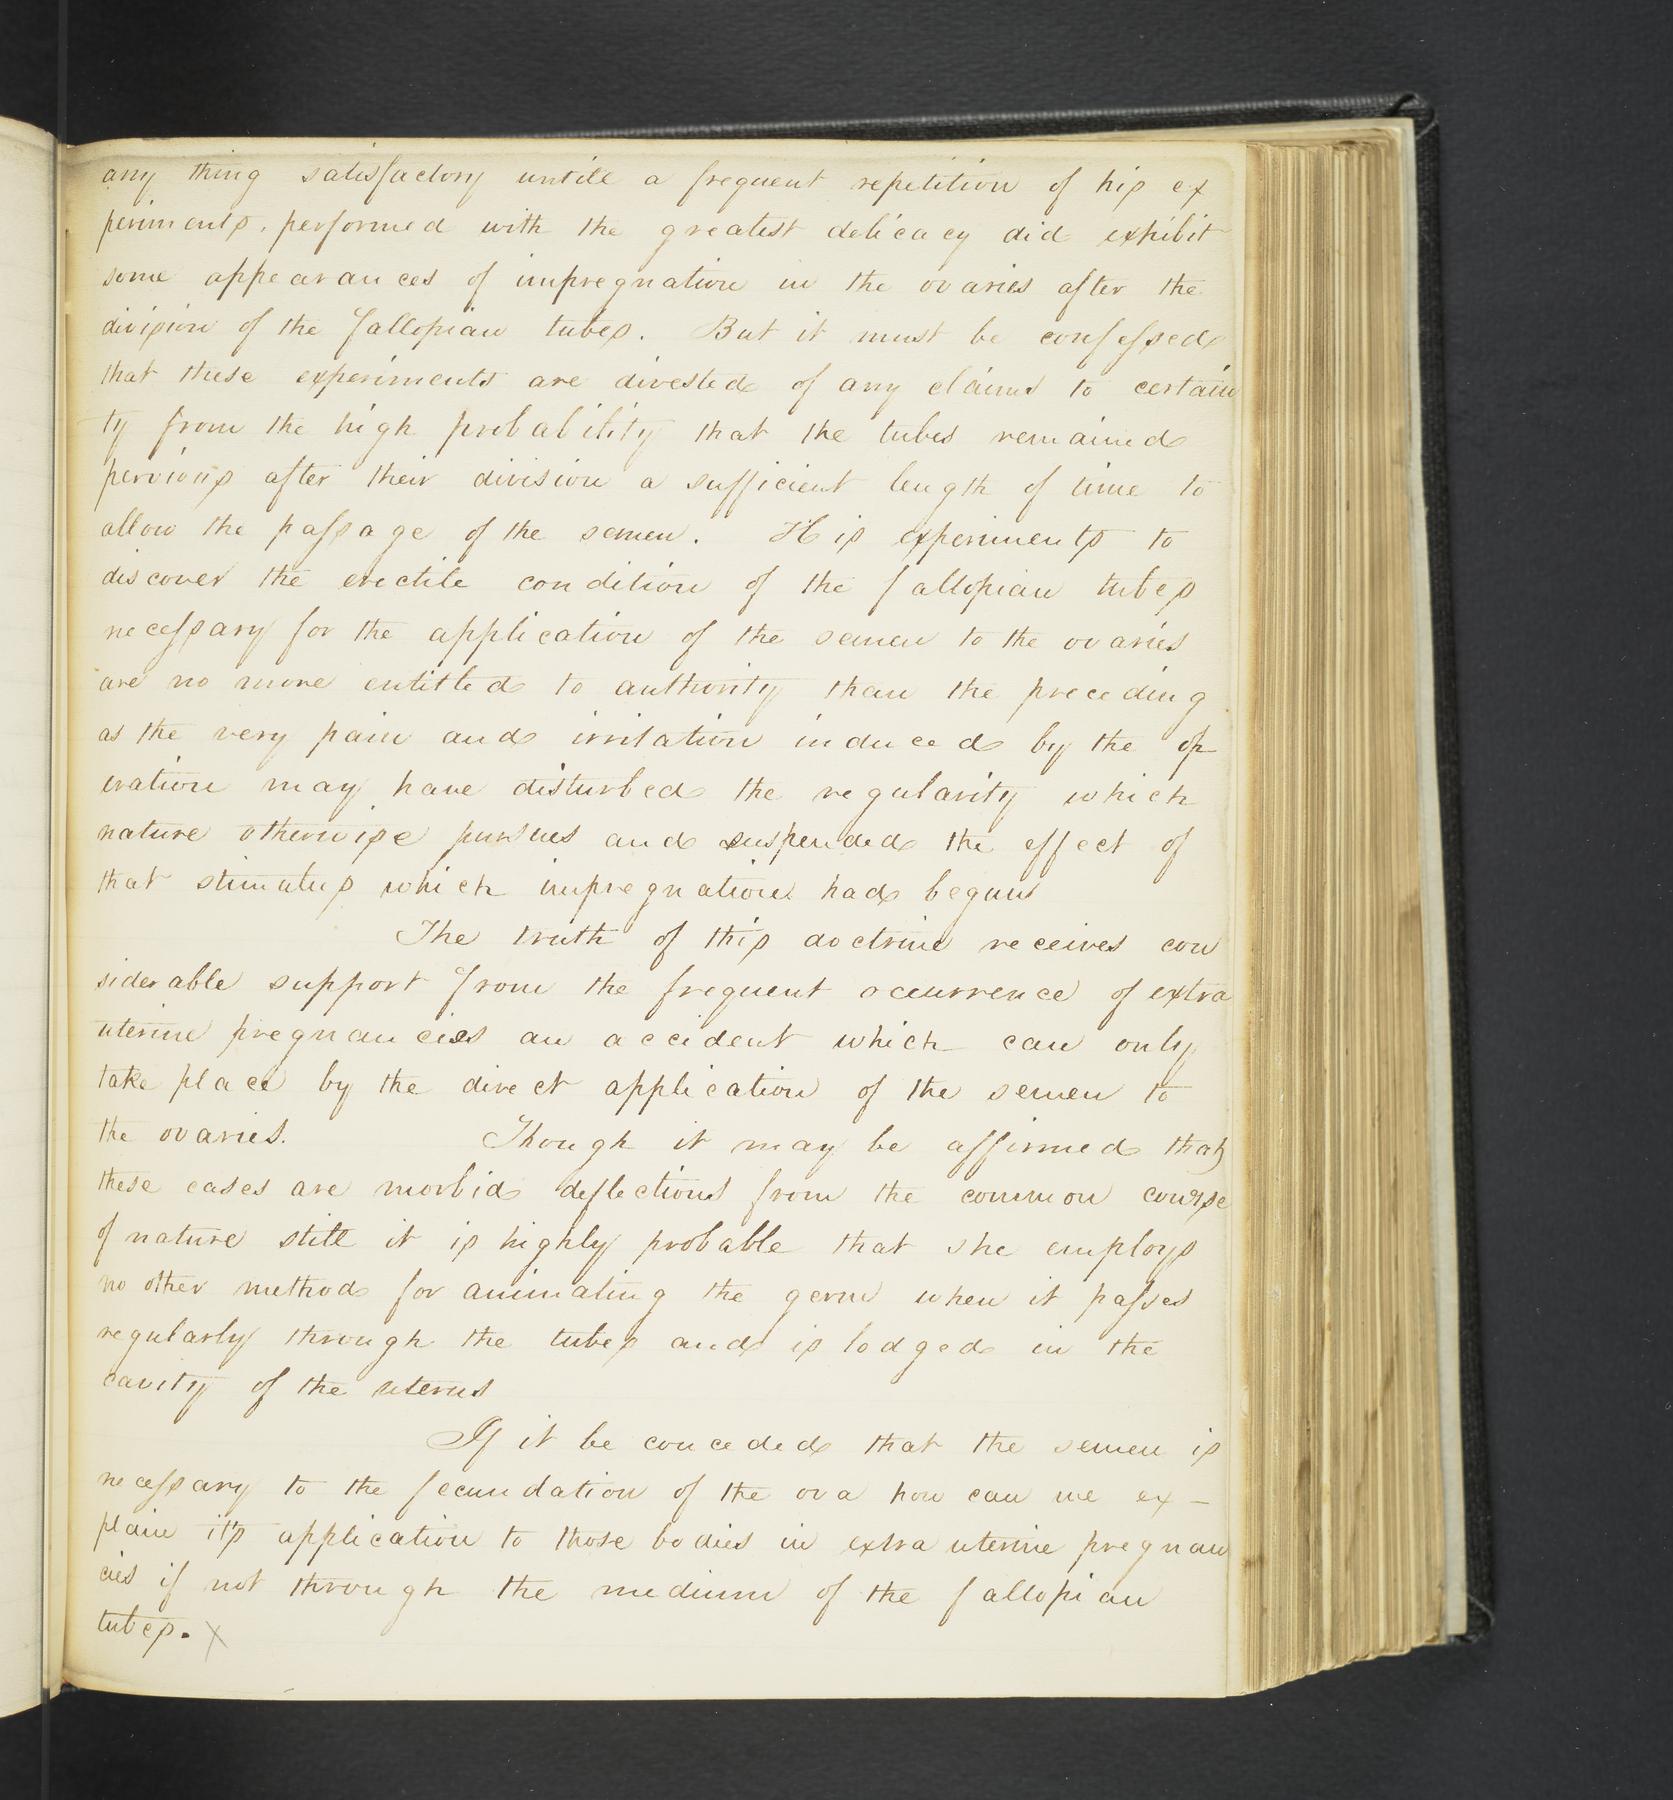 any thing satisfactory untill a frequent repetition of his ex
periments, performed with the greatest delicacy did exhibit
some appearances of impregnation in the ovaries after the
division of the fallopian tubes. But it must be confessed
that these experiments are divested of any claims to certain
ty from the high probability that the tubes remained
pervious after their division a sufficient length of time to
allow the passage of the semen. His experiments to
discover the erectile condition of the fallopian tubes
necessary for the application of the semen to the ovaries
are no more entitled to authority than the preceding
as the very pain and irritation induced by the op
eration may have disturbed the regularity which
nature otherwise pursues and suspended the effect of
that stimulus which impregnation had begun
The truth of this doctrine receives con
siderable support from the frequent occurrence of extra
uterine pregnancies an accident which can only
take place by the direct application of the semen to
the ovaries. Though it may be affirmed that
these cases are morbid deflections from the common course
of nature still it is highly probable that she employs
no other method for animating the germ when it passes
regularly through the tubes and is lodged in the
cavity of the uterus
If it be conceded that the semen is
necessary to the fecundation of the ova how can we ex-
plain it's application to those bodies in extra uterine pregnan
cies if not through the medium of the fallopian
tubes. x